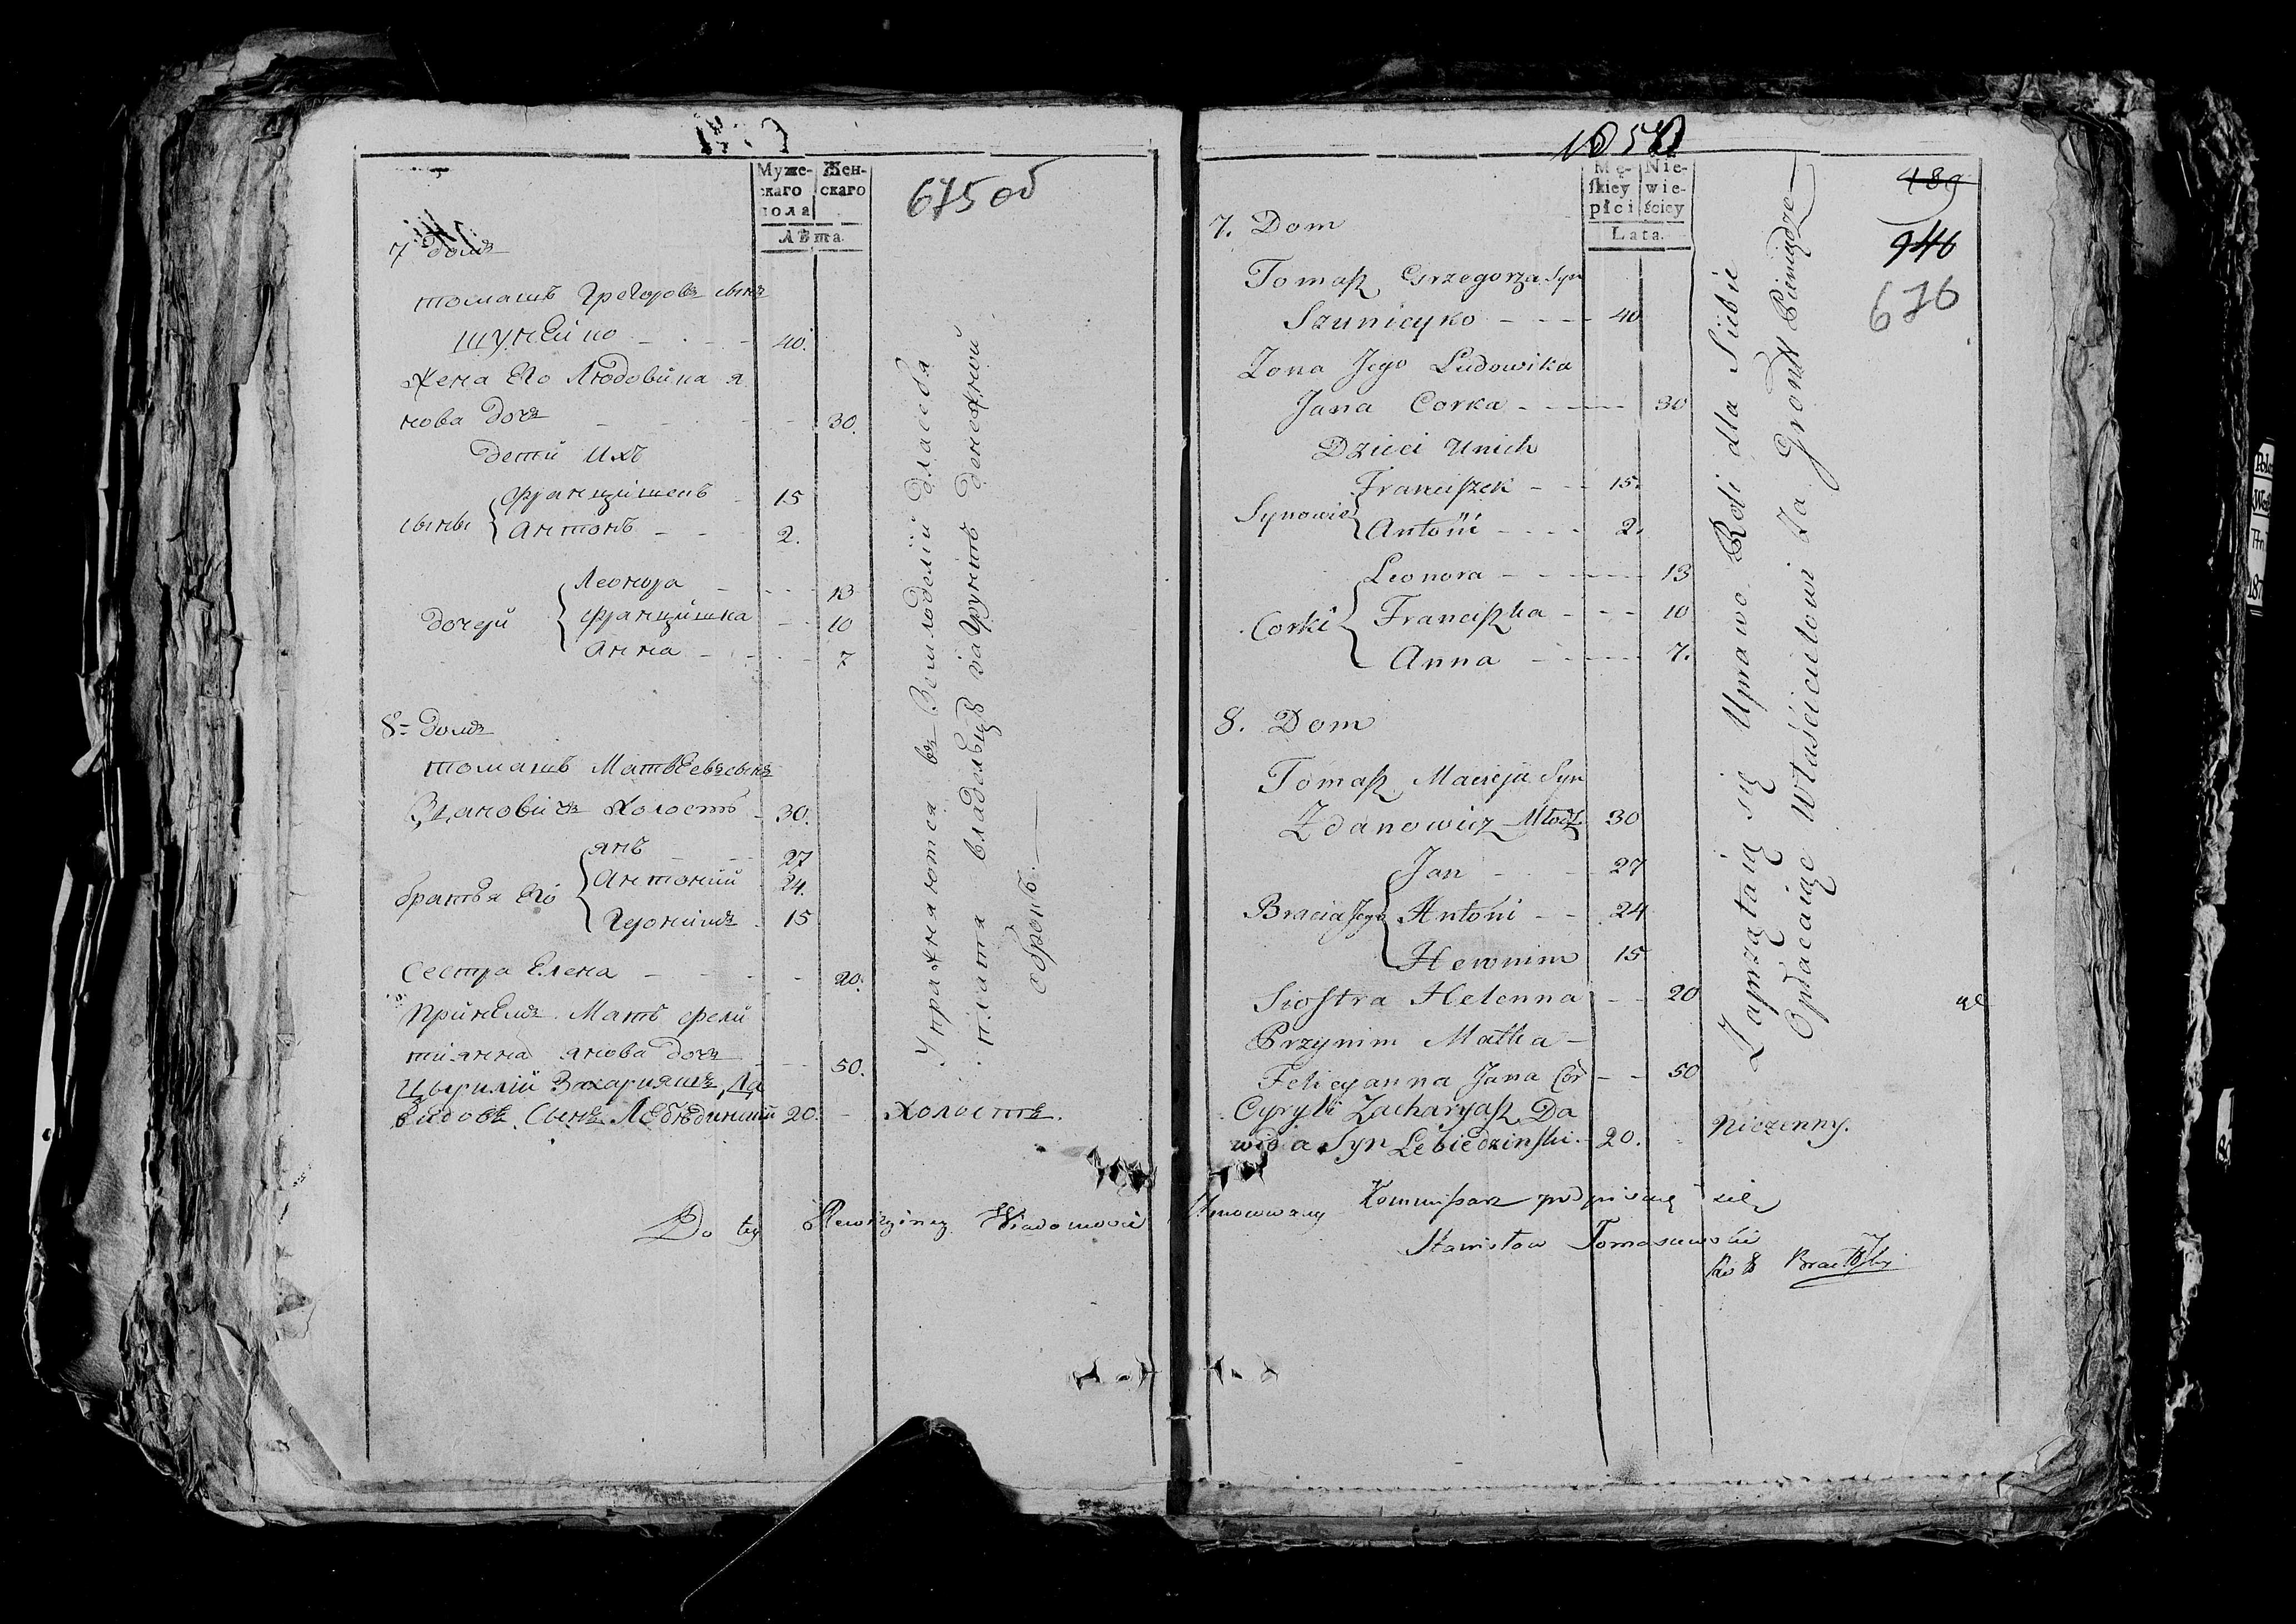 Муже-
скаго
пола
Жен-
скаго
Лѣта.
675 об
7 домъ
томашъ Грегоровъ сынъ
шунейко - - - 40.
жена Его Людовика я
нова дочъ - - - 30.
дети ихъ
сыны
Францишекъ - 15
Антонъ - - - 2.
дочери
Леонора - - - 13
Францишка - - 10
Анна - - - 7
8 домъ
томашъ Матвѣевъ сынъ
Здановичъ холостъ - 30.
братья Его
янъ - - - 27
Антоній 24.
Героним 15
Сестра Елена - - - 20.
Мать фели
янова дочъ - - - 50.
Захарияшъ Да
видовъ Сынъ Лебѣдинский 20. - холостъ.
Упражняются въ Земледелiи для себя
платя владельцу за грунтъ денежный
оброкъ.
Do tey Rewizyiney Wiadomości
1050
Mę-
skiey
płci
Nie-
wie-
ściey
Lata.
489
946
676
7. Dom
Tomasz Grzegorza Syn
Szunieyko - - - 40
Zona Jego Ludowika
Jana Corka - - - 30
Dzieci Unich
Synowie
Franciszek - - 15.
Antoni - - - 2.
Corki
Leonora - - - 13
Franciszka - - - 10
Anna - - - 7.
8. Dom
Tomasz Macieja Syn
Zdanowicz Młodz. 30
Bracia Jego
Jan - - - 27
Antoni - - 24
Hewnim 15
Siostra Helenna - - 20
Przynim Matka -
Felicyanna Jana Cor - - 50
Cyryli Zacharyasz Da
wida Syn Lebiedzinski. - 20. Niezenny.
Zaprzątaią się Uprawą Roli dla Siebie
Opłacaiąc Właścicielowi Za Gront Pieniądze
Kommisarz podpisuię się
Stanisław Tomaszewski